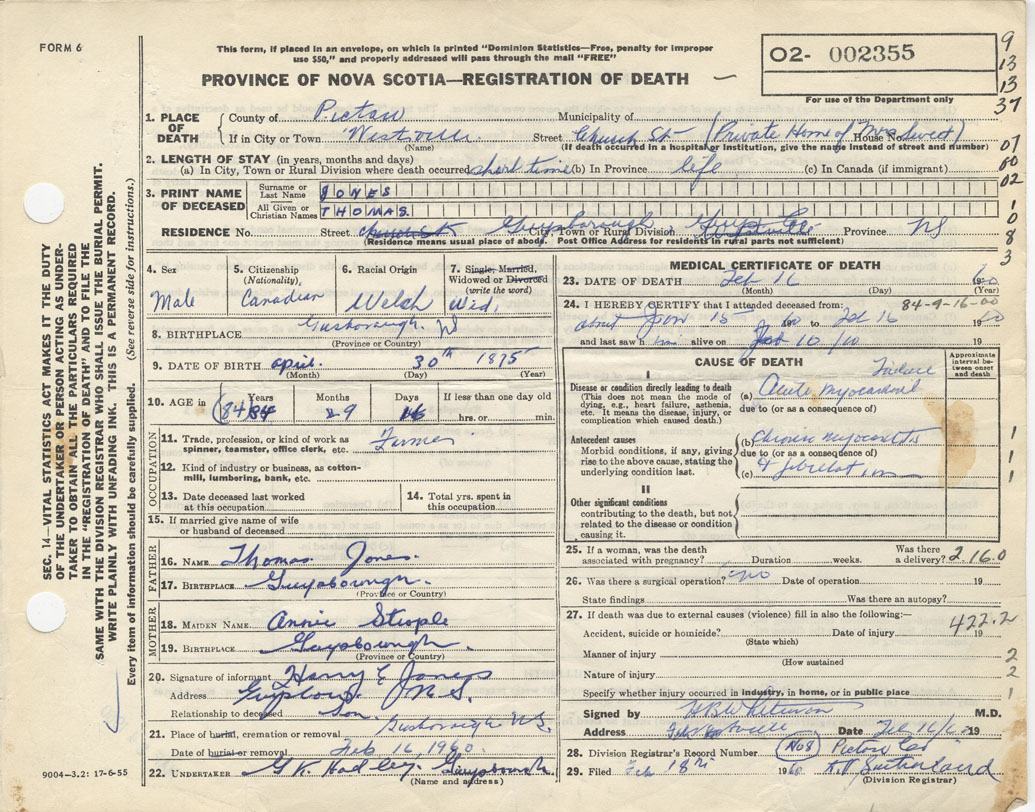 FORM 6
This form, if placed in an envelope, on which is printed "Dominion Statistics—Free, penalty for improper
use $50," and properly addressed will pass through the mail "FREE"
PROVINCE OF NOVA SCOTIA—REGISTRATION OF DEATH
O2- 002355
For use of the Department only
9
13
13
37
07
00
02
1
0
8
3
SEC. 14—VITAL STATISTICS ACT MAKES IT THE DUTY
OF THE UNDERTAKER OR PERSON ACTING AS UNDER-
TAKER TO OBTAIN ALL THE PARTICULARS REQUIRED
IN THE "REGISTRATION OF DEATH" AND TO FILE THE
SAME WITH THE DIVISION REGISTRAR WHO SHALL ISSUE THE BURIAL PERMIT.
WRITE PLAINLY WITH UNFADING INK. THIS IS A PERMANENT RECORD.
Every item of information should be carefully supplied. (See reverse side for instructions.)
1. PLACE OF DEATH
County of Pictou Municipality of
If in City or Town Westville Street Church St (Private Home of Mrs) House No.
(Name) (If death occurred in a hospital or institution, give the name instead of street and number)
2. LENGTH OF STAY (in years, months and days)
(a) In City, Town or Rural Division where death occurred short time (b) In Province life (c) In Canada (if immigrant)
3. PRINT NAME OF DECEASED
Surname or Last Name JONES
All Given or Christian Names THOMAS
RESIDENCE No. Street Church St City, Town or Rural Division Guysborough Province NS
(Residence means usual place of abode. Post Office Address for residents in rural parts not sufficient)
4. Sex
Male
5. Citizenship (Nationality)
Canadian
6. Racial Origin
Welch
7. Single, Married, Widowed or Divorced (write the word)
Wid.
8. BIRTHPLACE Guysborough NS
(Province or Country)
9. DATE OF BIRTH April 30th 1875
(Month) (Day) (Year)
10. AGE in Years Months Days If less than one day old
84 84 9 16 hrs. or min.
OCCUPATION
11. Trade, profession, or kind of work as
spinner, teamster, office clerk, etc. Farmer
12. Kind of industry or business, as cotton-
mill, lumbering, bank, etc.
13. Date deceased last worked
at this occupation
14. Total yrs. spent in
this occupation
15. If married give name of wife
or husband of deceased
FATHER
16. NAME Thomas Jones
17. BIRTHPLACE Guysborough.
(Province or Country)
MOTHER
18. MAIDEN NAME Annie Strople
19. BIRTHPLACE Guysborough
(Province or Country)
20. Signature of informant Harry E Jones
Address N.S.
Relationship to deceased Son.
21. Place of burial, cremation or removal Guysborough N.S.
Date of burial or removal Feb 16 1960
22. UNDERTAKER G.K. Hadley Guysborough
(Name and address)
9004—3.2: 17-6-55
MEDICAL CERTIFICATE OF DEATH
23. DATE OF DEATH Feb 16 60
(Month) (Day) (Year)
24. I HEREBY CERTIFY that I attended deceased from: 84-9-16-00
about Jan 15 60 to Feb 16 1960
and last saw h im alive on Feb 10/60 19
CAUSE OF DEATH
Approximate interval between onset and death
I
Disease or condition directly leading to death
(This does not mean the mode of
dying, e.g., heart failure, asthenia,
etc. It means the disease, injury, or
complication which caused death.)
(a) Acute Myocardial Failure
due to (or as a consequence of)
Antecedent causes
Morbid conditions, if any, giving
rise to the above cause, stating the
underlying condition last.
(b) Chronic myocarditis 1
due to (or as a consequence of) 1
(c) & fibrillation 1
II
Other significant conditions
contributing to the death, but not
related to the disease or condition
causing it.
25. If a woman, was the death
associated with pregnancy? Duration weeks. Was there a delivery? 2.16.0
26. Was there a surgical operation? no Date of operation 19
State findings Was there an autopsy?
27. If death was due to external causes (violence) fill in also the following:— 422.2
Accident, suicide or homicide? Date of injury 19
(State which)
Manner of injury 2
(How sustained)
Nature of injury 2
Specify whether injury occurred in industry, in home, or in public place 1
Signed by M.D.
Address Westville Date Feb 16/60 19
28. Division Registrar's Record Number (No8) Pictou Co
29. Filed Feb 18th 1960 Sutherland
(Division Registrar)